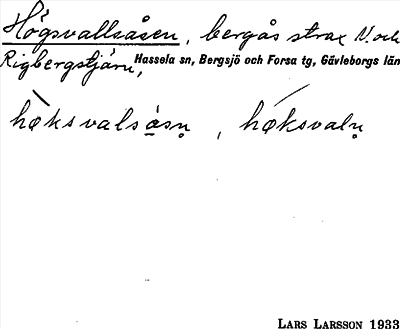 Högsvallsåsen, bergås strax N. och
Rigbergstjärn, Hassela sn, Bergsjö och Forsa tg, Gävleborgs län
høksvalsåsn̥, høksvaln̥
LARS LARSSON 1933